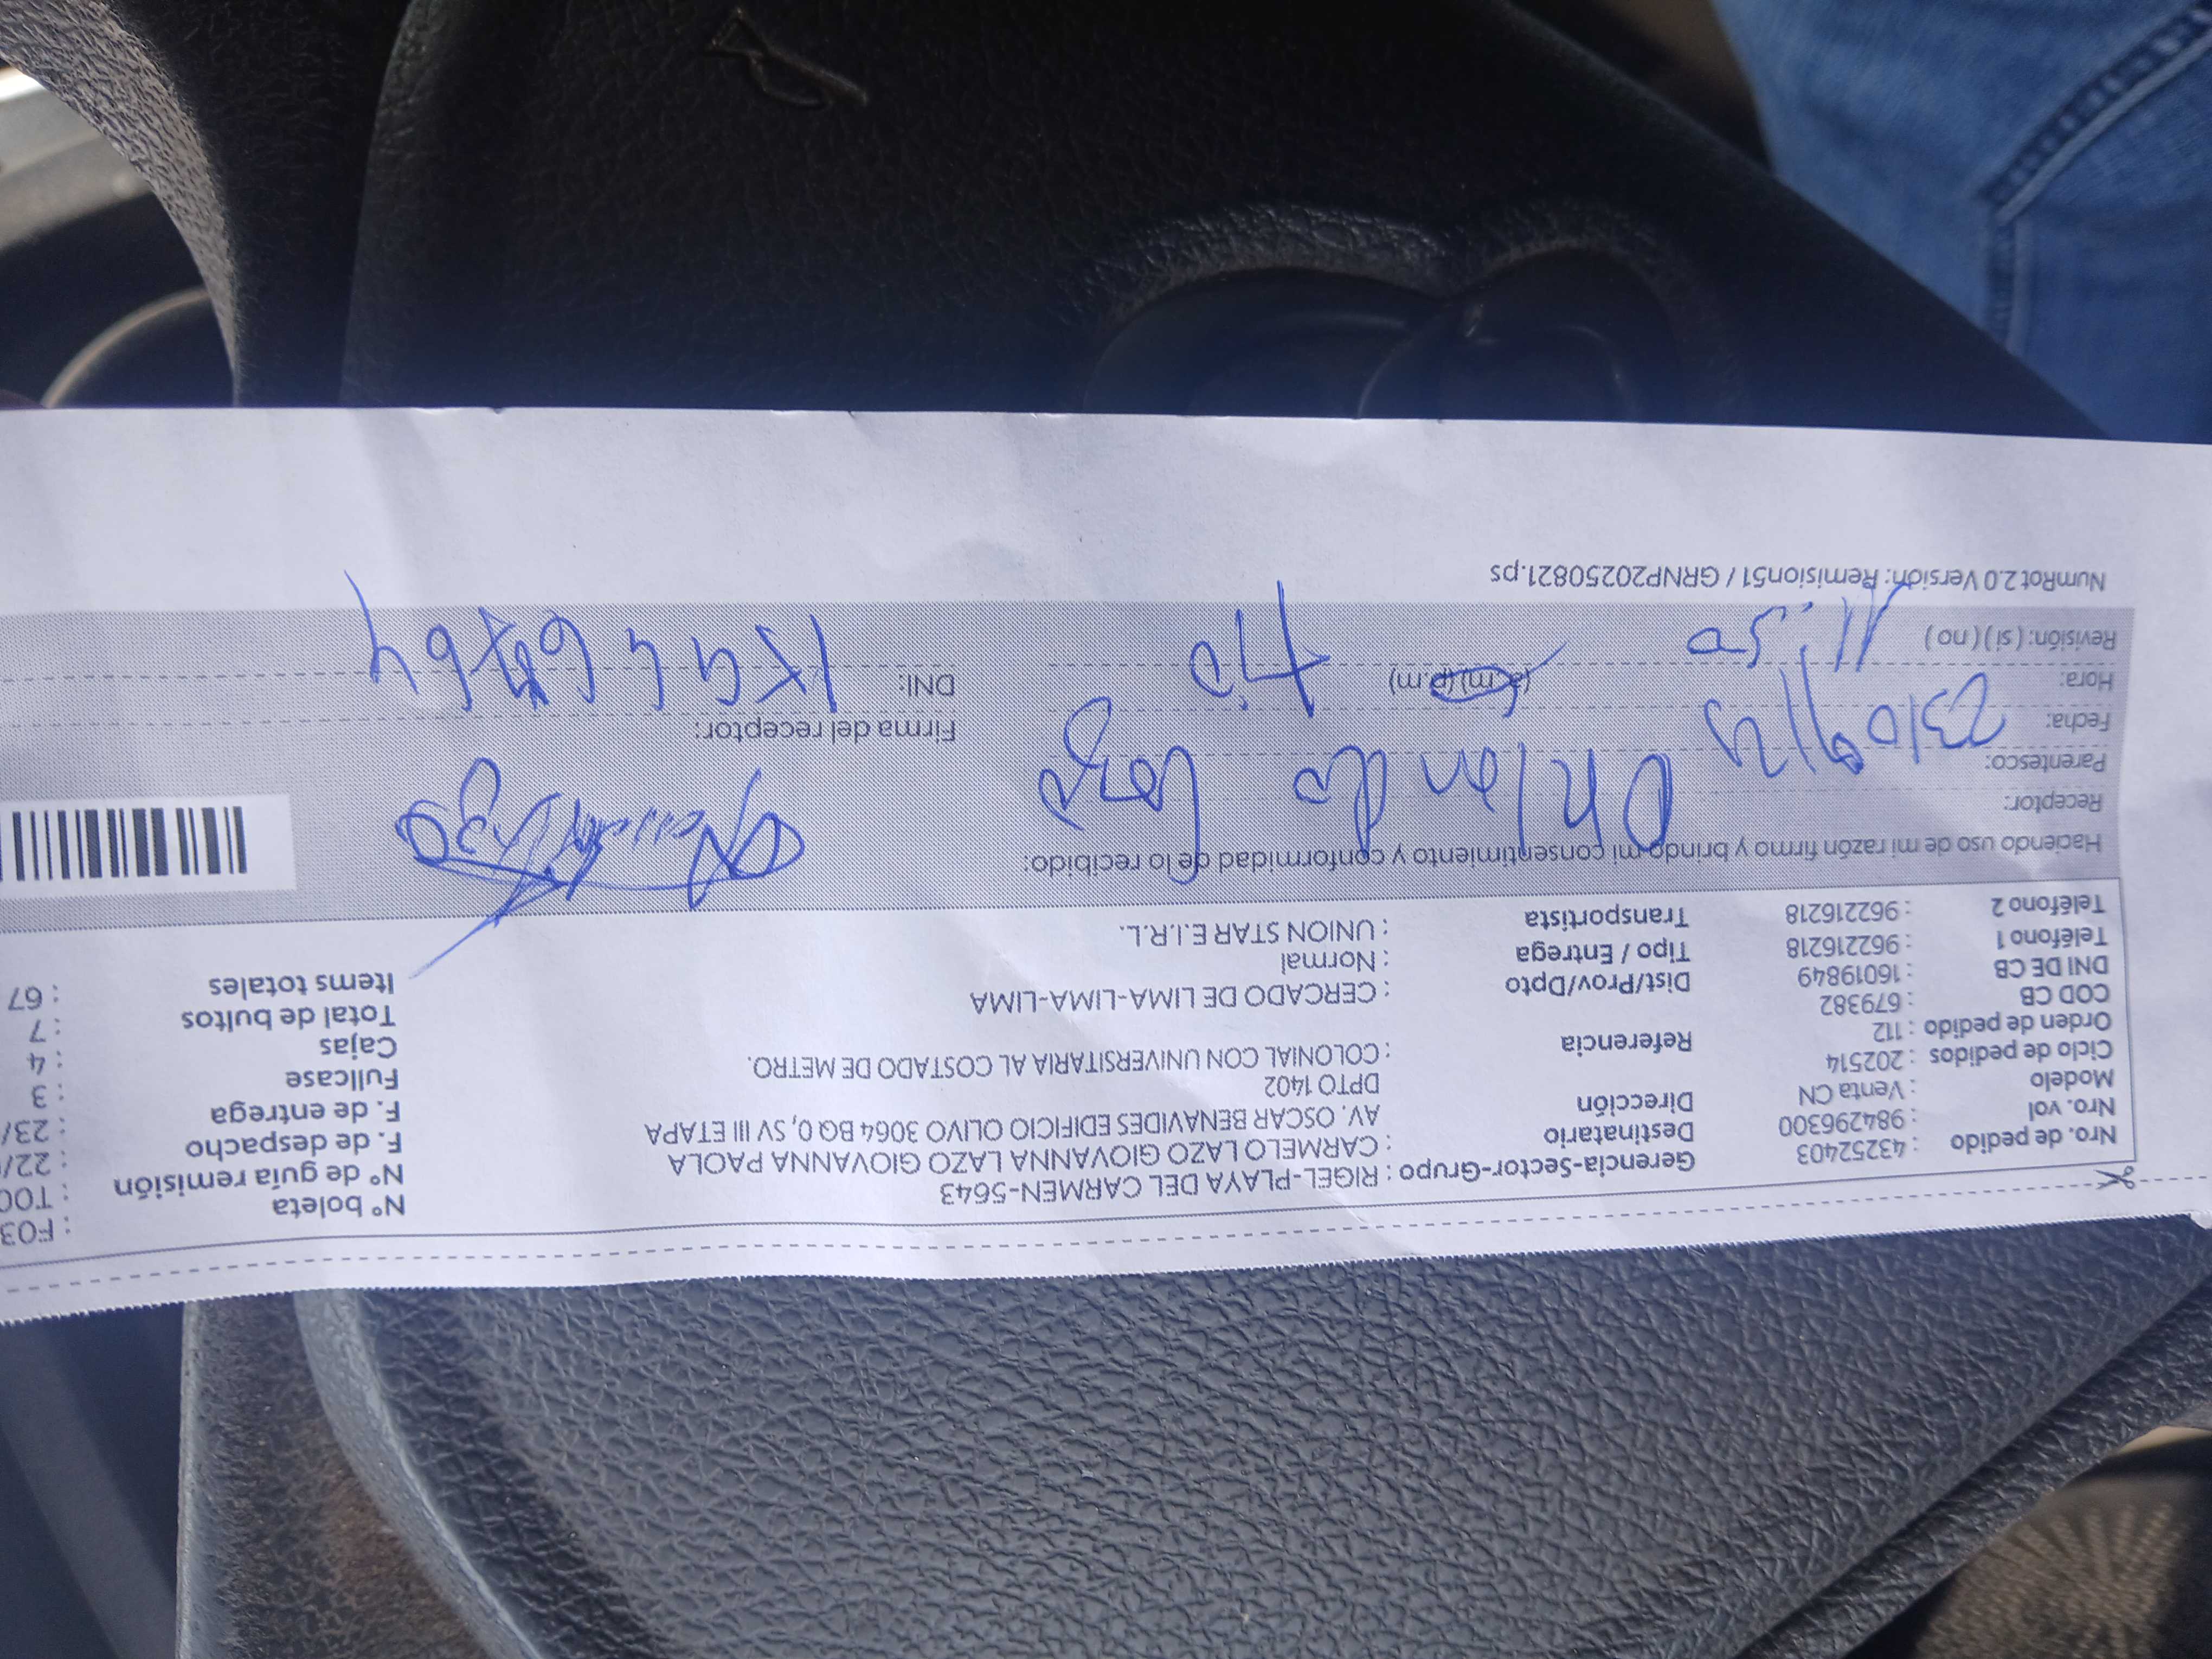 Nº boleta : F03
Nro. de pedido : 43252403 Gerencia-Sector-Grupo : RIGEL-PLAYA DEL CARMEN-5643 Nº de guía remisión : T00
Nro. vol : 984296300 Destinatario : CARMELO LAZO GIOVANNA LAZO GIOVANNA PAOLA F. de despacho : 22/
Modelo : Venta CN Dirección AV. OSCAR BENAVIDES EDIFICIO OLIVO 3064 BQ 0, SV III ETAPA F. de entrega : 23/
Ciclo de pedidos : 202514 DPTO 1402 Fullcase : 3
Orden de pedido : 112 Referencia : COLONIAL CON UNIVERSITARIA AL COSTADO DE METRO. Cajas : 4
COD CB : 679382 Total de bultos : 7
DNI DE CB : 16019849 Dist/Prov/Dpto : CERCADO DE LIMA-LIMA-LIMA Items totales : 67
Teléfono 1 : 962216218 Tipo / Entrega : Normal
Teléfono 2 : 962216218 Transportista : UNION STAR E.I.R.L.
Haciendo uso de mi razón firmo y brindo mi consentimiento y conformidad de lo recibido:
Receptor: Orlando Lazo
Parentesco: tio
Fecha: 23/08/25 Firma del receptor:
Hora: 11:50 (a.m) (p.m) DNI:
Revisión: ( si ) ( no )
NumRot 2.0 Versión: Remision51 / GRNP20250821.ps